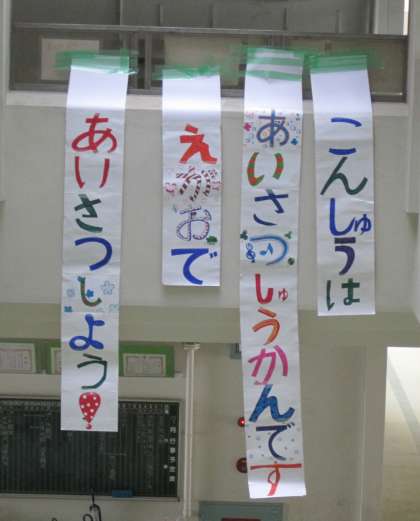 こんしゅうは
あいさつしゅうかんです
えがおで
あいさつしよう!